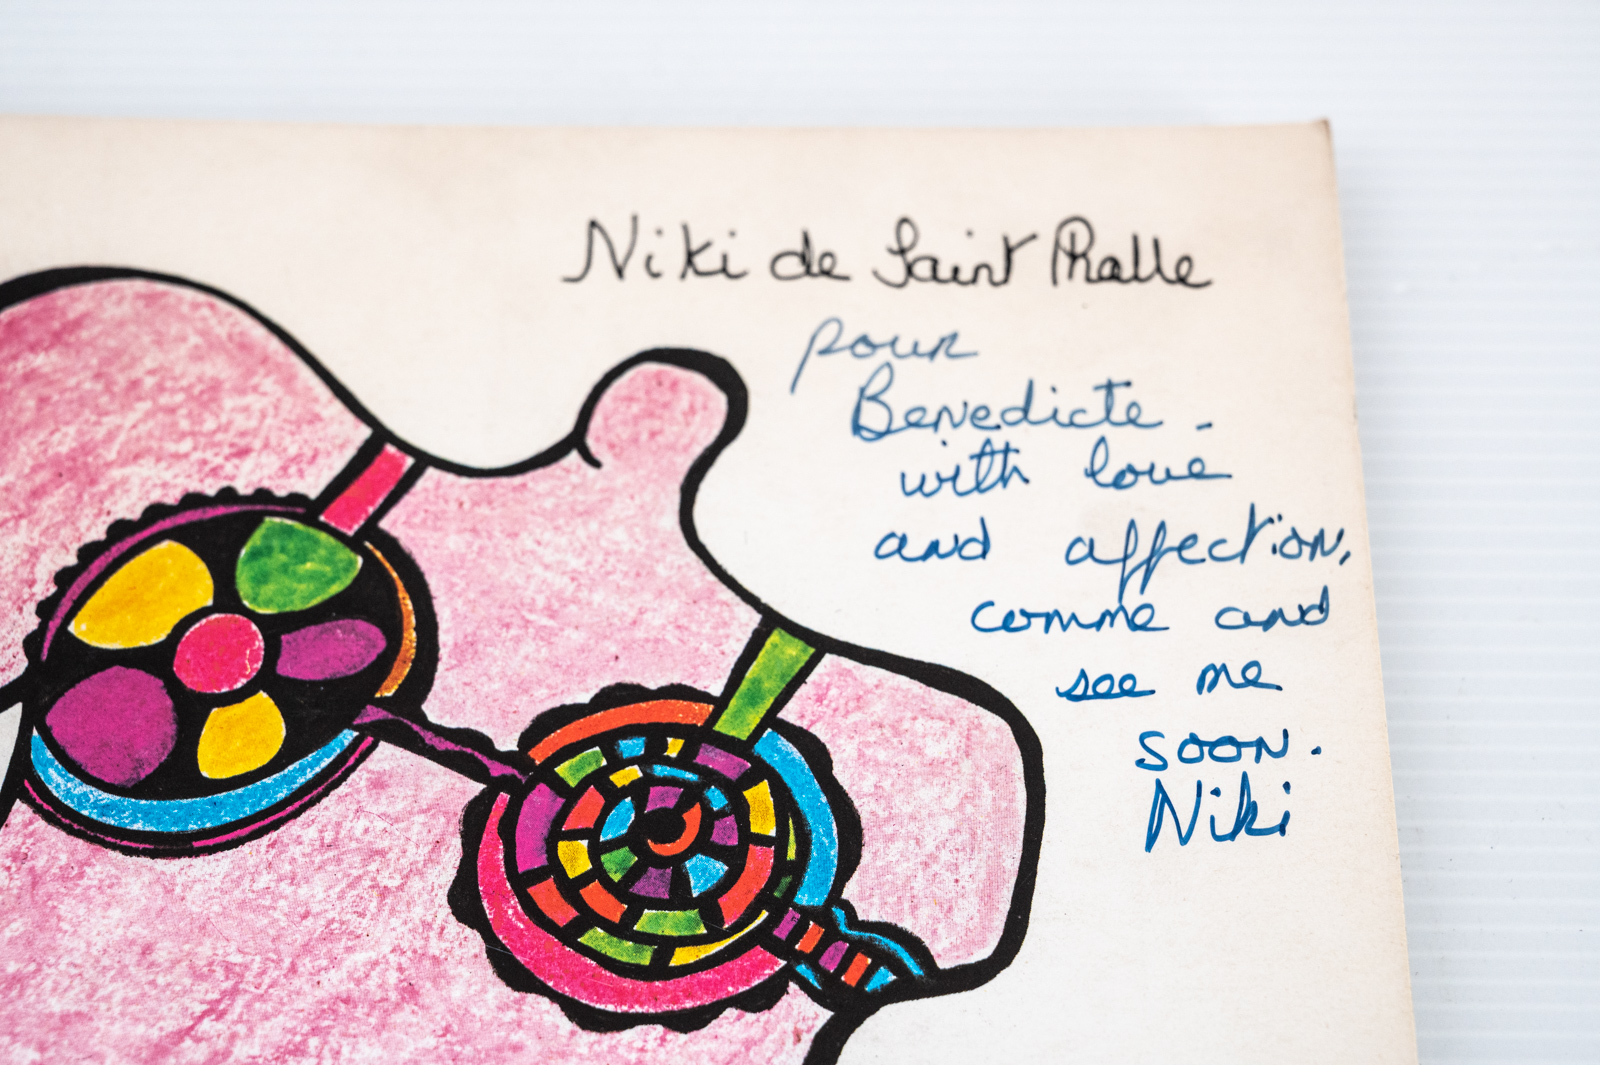 Niki de Saint Phalle
pour
Benedicte -
with love
and affection,
comme and
see me
soon.
Niki